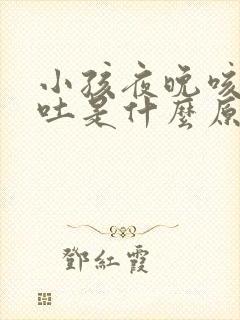 小孩夜晚咳
吐是什麼原
鄧紅霞